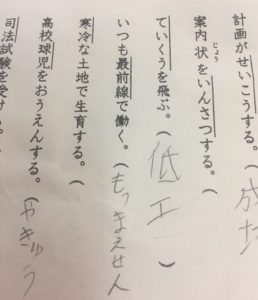 計画がせいこうする。(成功
案内状をいんさつする。(
じょう
ていくうを飛ぶ。(低工 )
いつも最前線で働く。(もっまえせん
寒冷な土地で生育する。(
高校球児をおうえんする。(やきゅう
司法試験を受け